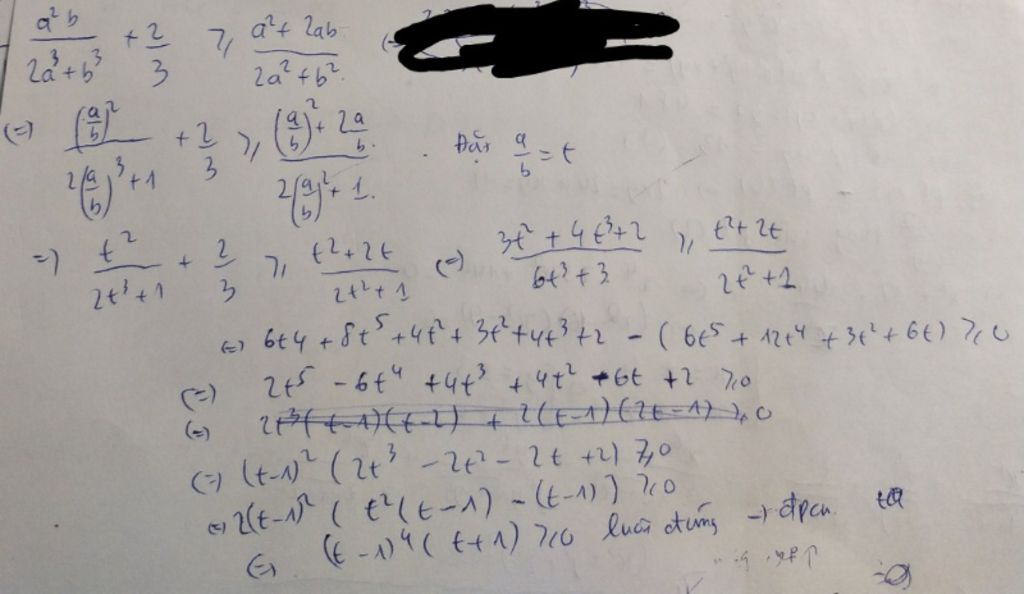 a²b/(2a³+b³) + 2/3 ⩾ (a²+2ab)/(2a²+b²).
(=) (a/b)²/(2(a/b)³+1) + 2/3 ⩾ ((a/b)²+2a/b)/(2(a/b)²+1). Đặt a/b = t
=) t²/(2t³+1) + 2/3 ⩾ (t²+2t)/(2t²+1) (=) (3t²+4t³+2)/(6t³+3) ⩾ (t²+2t)/(2t²+1)
(=) 6t4 + 8t⁵ + 4t² + 3t² + 4t³ + 2 - (6t⁵ + 12t⁴ + 3t² + 6t) ⩾ 0
(=) 2t⁵ - 6t⁴ + 4t³ + 4t² - 6t + 2 ⩾ 0
(=) 2t³(t-1)(t-2) + 2(t-1)(2t-1) ⩾ 0
(=) (t-1)² (2t³ - 2t² - 2t + 2) ⩾ 0
(=) 2(t-1)² (t²(t-1) - (t-1)) ⩾ 0
(=) (t-1)⁴(t+1) ⩾ 0 luôn đúng → đpcm